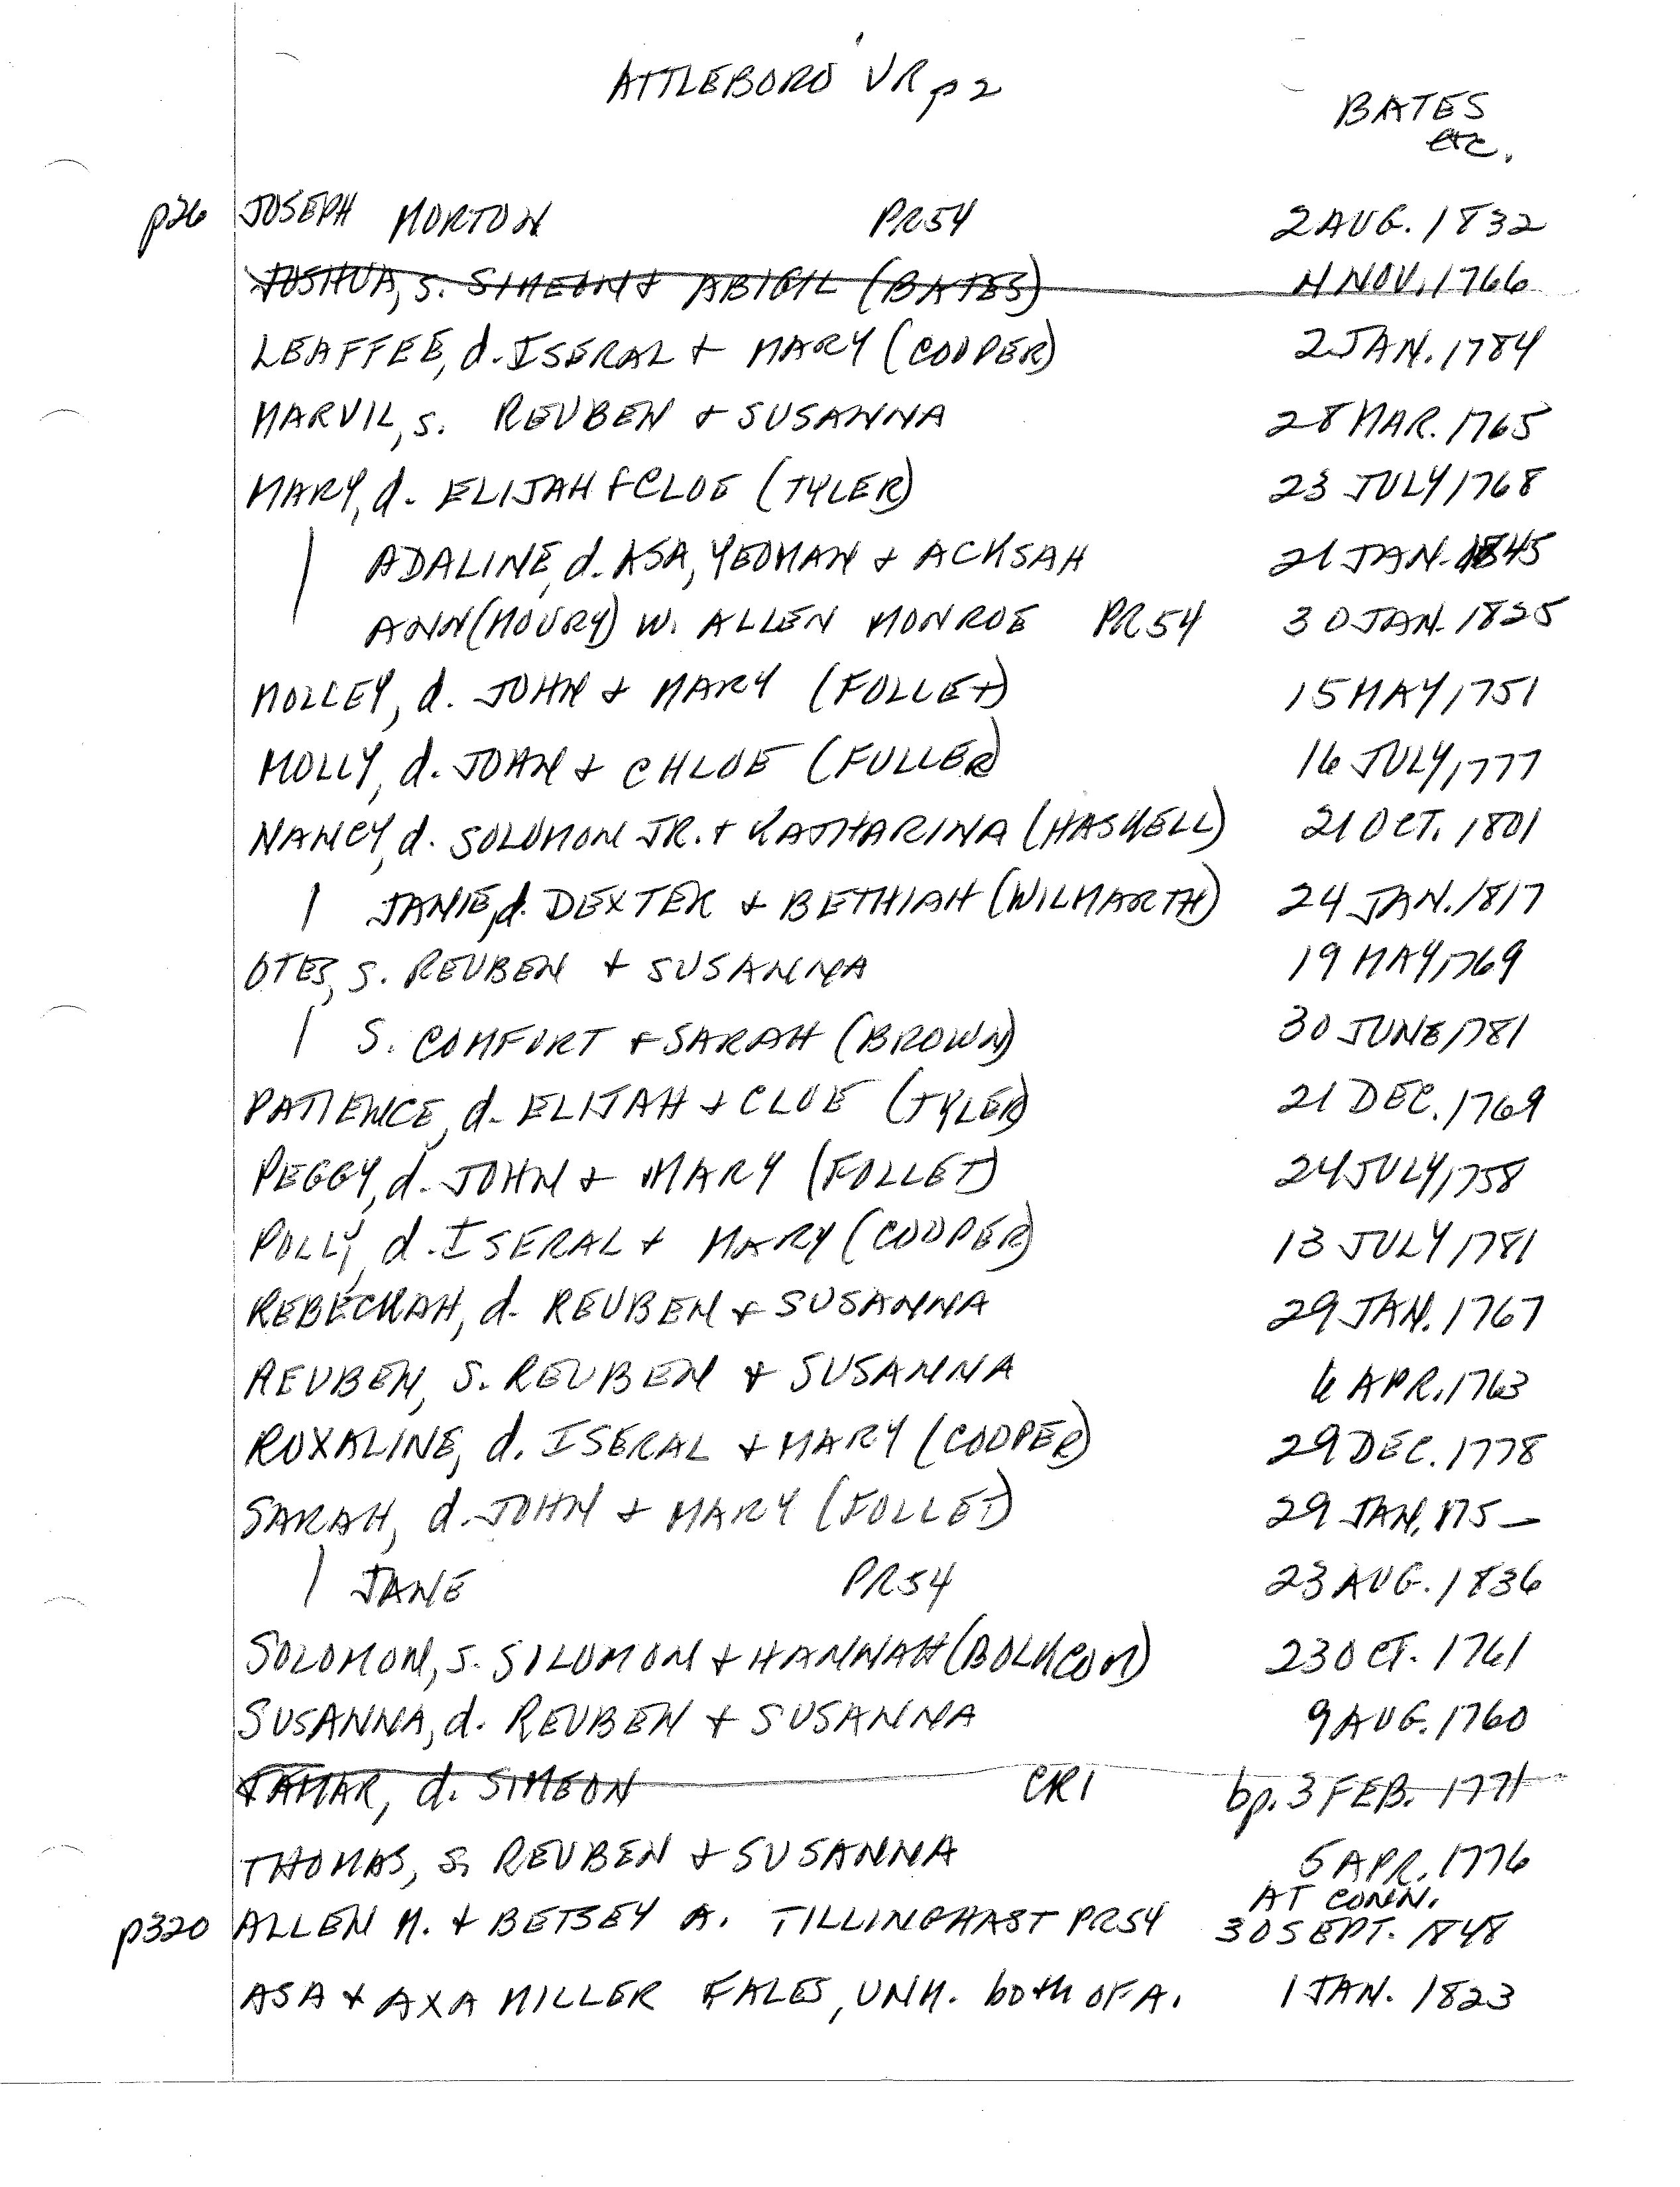 ATTLEBORO VR p 2
BATES
etc.
p26 JOSEPH MORTON PR54 2 AUG. 1832
JOSHUA, s. SIMEON + ABIGIL (BATES) NOV. 1766
LEAFFEE, d. ISERAL + MARY (COOPER) 2 JAN. 1784
MARVIL, s. REUBEN + SUSANNA 28 MAR. 1765
MARY, d. ELIJAH + CLOE (TYLER) 23 JULY 1768
| ADALINE, d. ASA, YEOMAN + ACKSAH 21 JAN. 1845
| ANN (MOURY) W. ALLEN MONROE PR54 30 JAN. 1825
MOLLEY, d. JOHN + MARY (FOLLET) 15 MAY 1751
MOLLY, d. JOHN + CHLOE (FULLER) 16 JULY, 1777
NANCY, d. SOLOMON JR. + KATHARINA (HASKELL) 21 OCT. 1801
| JANIE, d. DEXTER + BETHIAH (WILMARTH) 24 JAN. 1817
OTES, s. REUBEN + SUSANNA 19 MAY, 1769
| S. COMFORT + SARAH (BROWN) 30 JUNE, 1781
PATIENCE, d. ELIJAH + CLOE (TYLER) 21 DEC. 1769
PEGGY, d. JOHN + MARY (FOLLET) 24 JULY, 1758
POLLY, d. ISERAL + MARY (COOPER) 13 JULY 1781
REBECKAH, d. REUBEN + SUSANNA 29 JAN. 1767
REUBEN, S. REUBEN + SUSANNA 6 APR. 1763
ROXALINE, d. ISERAL + MARY (COOPER) 29 DEC. 1778
SARAH, d. JOHN + MARY (FOLLET) 29 JAN. 175_
| JANE PR54 23 AUG. 1836
SOLOMON, s. SOLOMON + HANNAH (BOLKCOM) 23 OCT. 1761
SUSANNA, d. REUBEN + SUSANNA 9 AUG. 1760
TAMAR, d. SIMEON CR1 bp. 3 FEB. 1771
THOMAS, s. REUBEN + SUSANNA 5 APR. 1776
AT CONN.
p320 ALLEN M. + BETSEY A. TILLINGHAST PR54 30 SEPT. 1848
ASA + AXA MILLER FALES, UNM. both OF A. 1 JAN. 1823